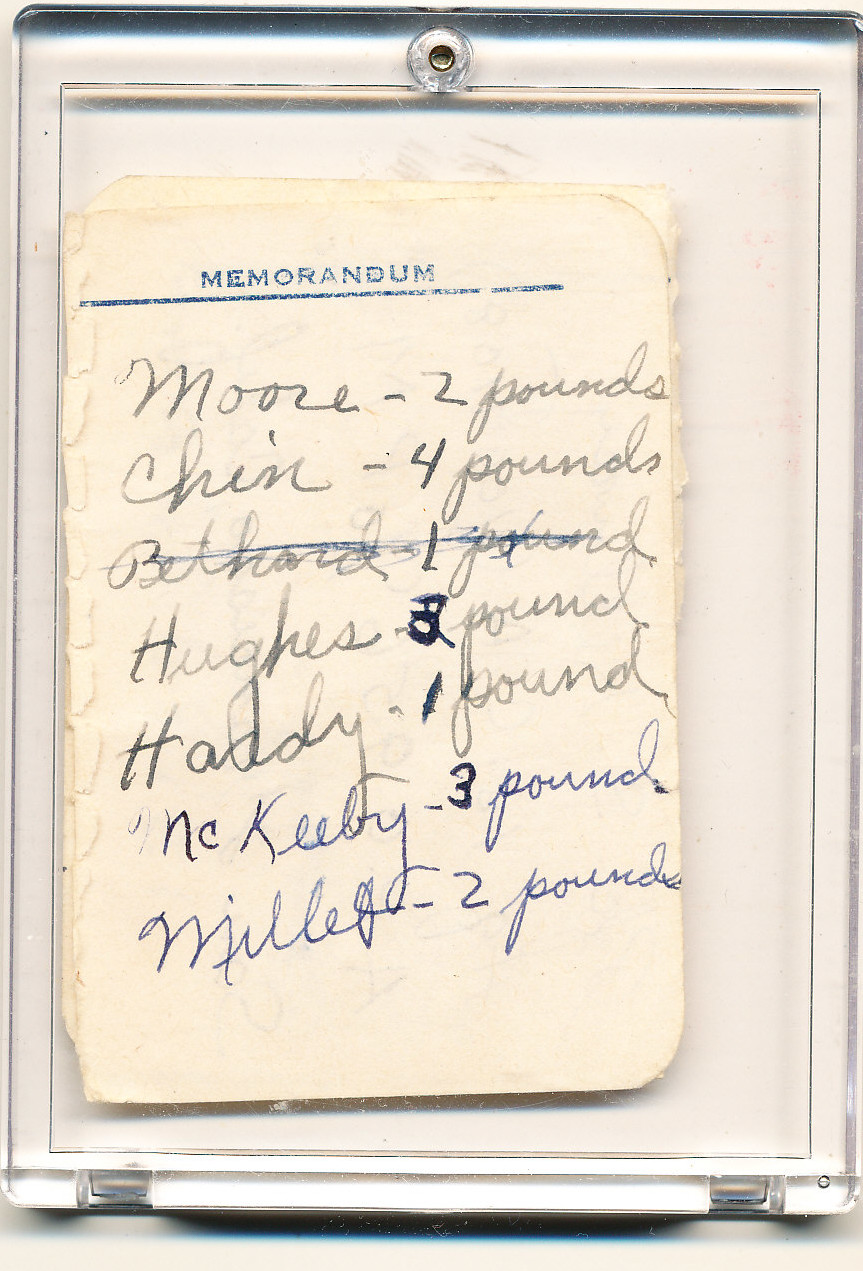 MEMORANDUM
Moore - 2 pounds
Chin - 4 pounds
Bethard - 1 pound
Hughes - pound
Haddy - 1 pound
McKeeby - 3 pound
Millet - 2 pounds